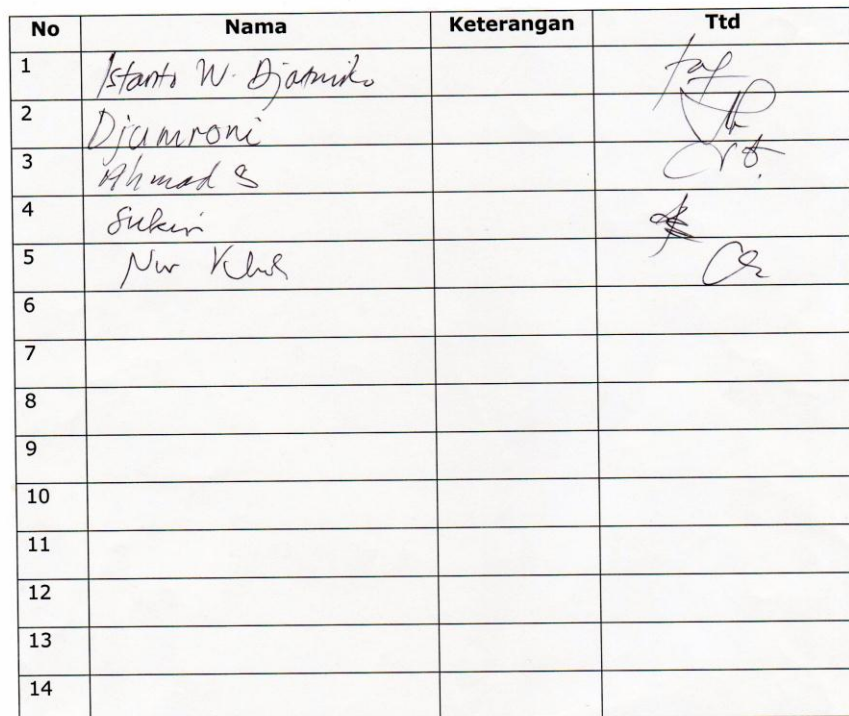 No Nama Keterangan Ttd
1 Istanto W. Djatmiko
2 Djamroni
3 Ahmad S
4 Sukir
5 Nur
6
7
8
9
10
11
12
13
14